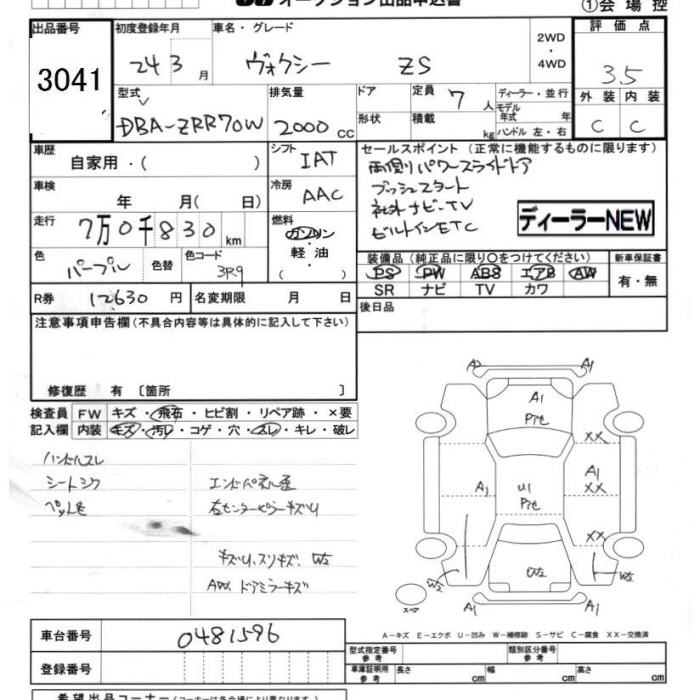 オークション出品申込書 ①会場控
出品番号 3041
初度登録年月 24 3月
車名・グレード ヴォクシー ZS
2WD・4WD
評価点 3.5
型式 DBA-ZRR70W
排気量 2000cc
ドア形状
定員 7人
積載 kg
ディーラー・並行
モデル年式 年
ハンドル 左・右
外装 C 内装 C
車歴 自家用・( )
シフト IAT
セールスポイント (正常に機能するものに限ります)
両側パワースライドドア
プッシュスタート
社外ナビ・TV
ビルトインETC
ディーラーNEW
車検 年 月( 日)
冷房 AAC
走行 7万0千830km
燃料 ガソリン・軽油・( )
色 パープル 色替 色コード 3R9
装備品 (純正品に限り○をつけてください) 新車保証書
PS PW ABS エアB AW 有・無
SR ナビ TV カワ
R券 12630円 名変期限 月 日
後日品
注意事項申告欄 (不具合内容等は具体的に記入して下さい)
修復歴 有 〔箇所 〕
検査員記入欄 FW キズ・飛石・ヒビ割・リペア跡・×要
内装 キズ・汚レ・コゲ・穴・スレ・キレ・破レ
ハンドルスレ
シートシワ
エンドパネル歪
右センターピラーキズU
キズU、スリキズ、W2
AW ドアミラーキズ
A2 A1
A1
P他
XX
A1 U1 A1
P他 XX
XX
W2 W2 W2
スペア A1 A1
A-キズ E-エクボ U-凹み W-補修跡 S-サビ C-腐食 XX-交換済
車台番号 0481596
型式指定番号 参考 類別区分番号 参考
登録番号
車庫証明用 参考 長さ cm 幅 cm 高さ cm
希望出品コーナー